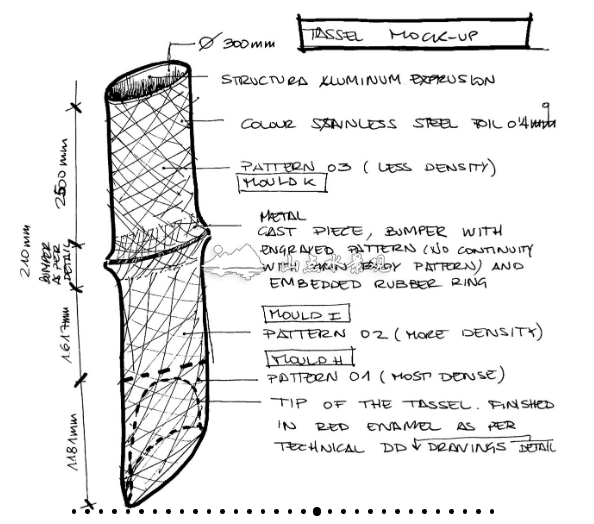 TASSEL MOCK-UP
Ø 300mm
STRUCTURA ALUMINUM EXTRUSION
COLOUR STAINLESS STEEL FOIL 0'4mm
PATTERN 03 (LESS DENSITY)
MOULD K
METAL
CAST PIECE, BUMPER WITH
ENGRAVED PATTERN (N/O CONTINUITY
WITH MAIN BODY PATTERN) AND
EMBEDDED RUBBER RING
MOULD I
PATTERN 02 (MORE DENSITY)
MOULD H
PATTERN 01 (MOST DENSE)
TIP OF THE TASSEL. FINISHED
IN RED ENAMEL AS PER
TECHNICAL DD DRAWINGS DETAIL
2500mm
210mm
BUMPER
AS PER
DETAIL
1617mm
1181mm